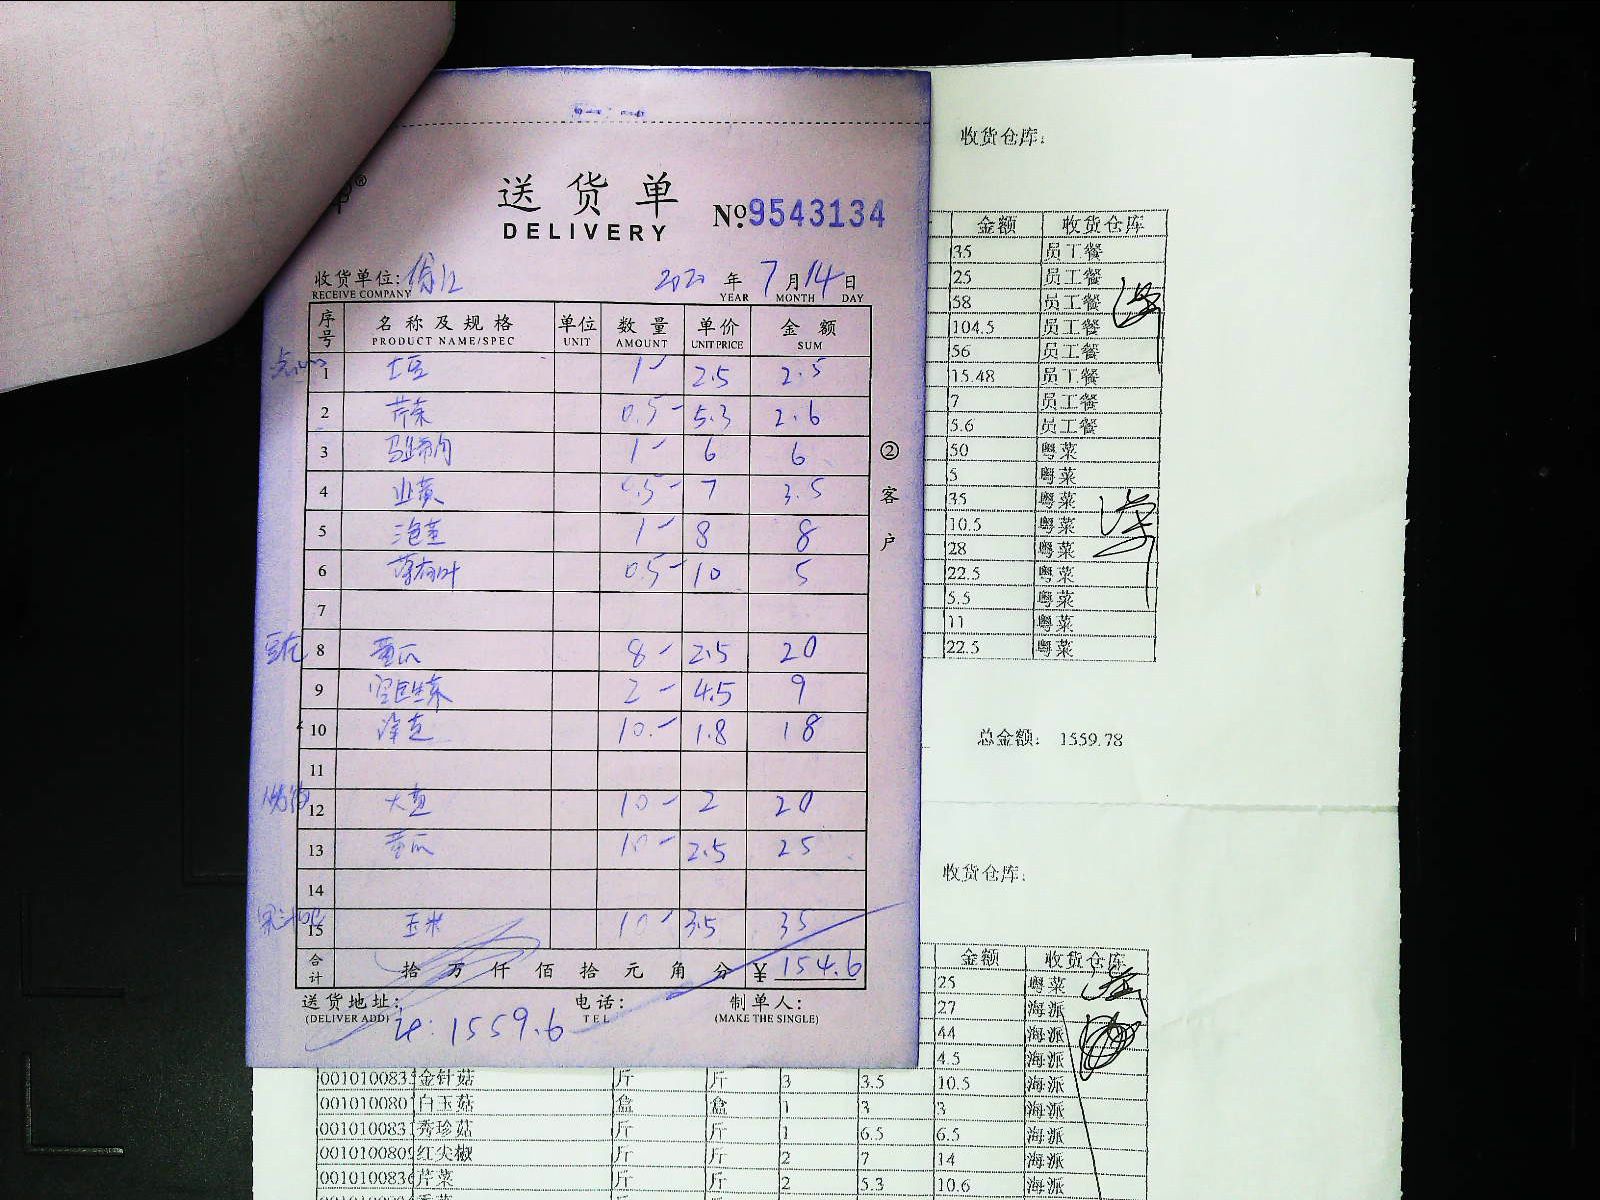 送货单
DELIVERY
№ 9543134
收货单位:
RECEIVE COMPANY
年 7 月 14 日
YEAR MONTH DAY
序号 名称及规格 单位 数量 单价 金额
PRODUCT NAME/SPEC UNIT AMOUNT UNIT PRICE SUM
1 土豆 1 2.5 2.5
2 芹菜 0.5 5.3 2.6
3 1 6 6
4 7 3.5
5 1 8 8
6 薄荷叶 0.5 10 5
7
8 黄瓜 8 2.5 20
9 2 4.5 9
10 10 1.8 18
11
12 10 2 20
13 黄瓜 10 2.5 25
14
15 玉米 10 3.5 35
合计 拾 万 仟 佰 拾 元 角 分 ¥ 154.6
送货地址: 电话: 制单人:
(DELIVER ADD) TEL (MAKE THE SINGLE)
1559.6
②客户
收货仓库:
金额 收货仓库
35 员工餐
25 员工餐
58 员工餐
104.5 员工餐
56 员工餐
15.48 员工餐
7 员工餐
5.6 员工餐
50 粤菜
5 粤菜
35 粤菜
10.5 粤菜
28 粤菜
22.5 粤菜
5.5 粤菜
11 粤菜
22.5 粤菜
总金额: 1559.78
收货仓库:
金额 收货仓库
25 粤菜
27 海派
44 海派
4.5 海派
001010083 金针菇 斤 斤 3 3.5 10.5 海派
001010080 白玉菇 盒 盒 1 3 3 海派
001010083 秀珍菇 斤 斤 1 6.5 6.5 海派
001010080 红尖椒 斤 斤 2 7 14 海派
001010083 芹菜 斤 斤 2 5.3 10.6 海派